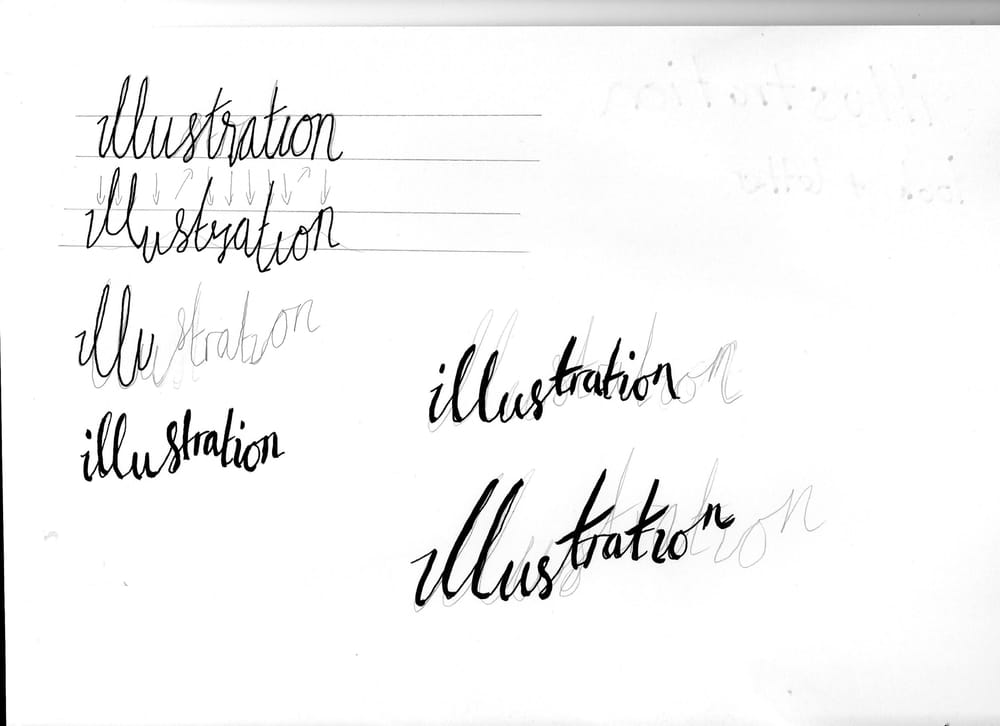 illustration
illustration
illustration
illustration
illustration
illustration